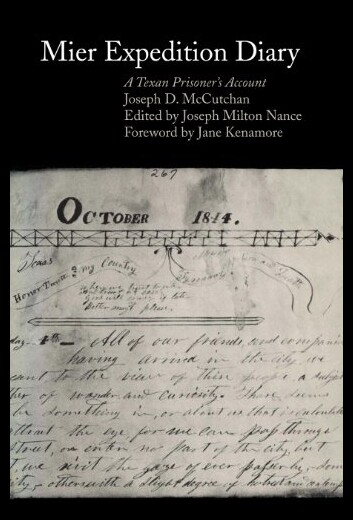 Mier Expedition Diary
A Texan Prisoner's Account
Joseph D. McCutchan
Edited by Joseph Milton Nance
Foreword by Jane Kenamore
267
OCTOBER 1844.
Texas
my Country
day. 4th All of our friends, and companions
having arrived in the city, we
to the view of these people a subject
of wonder and curiosity. There seems
be something in, or about us that is calculated
the eye for we can pass through
street, or enter no part of the city, but
we visit the gaze of ever passer by, some
others with a slight degree of